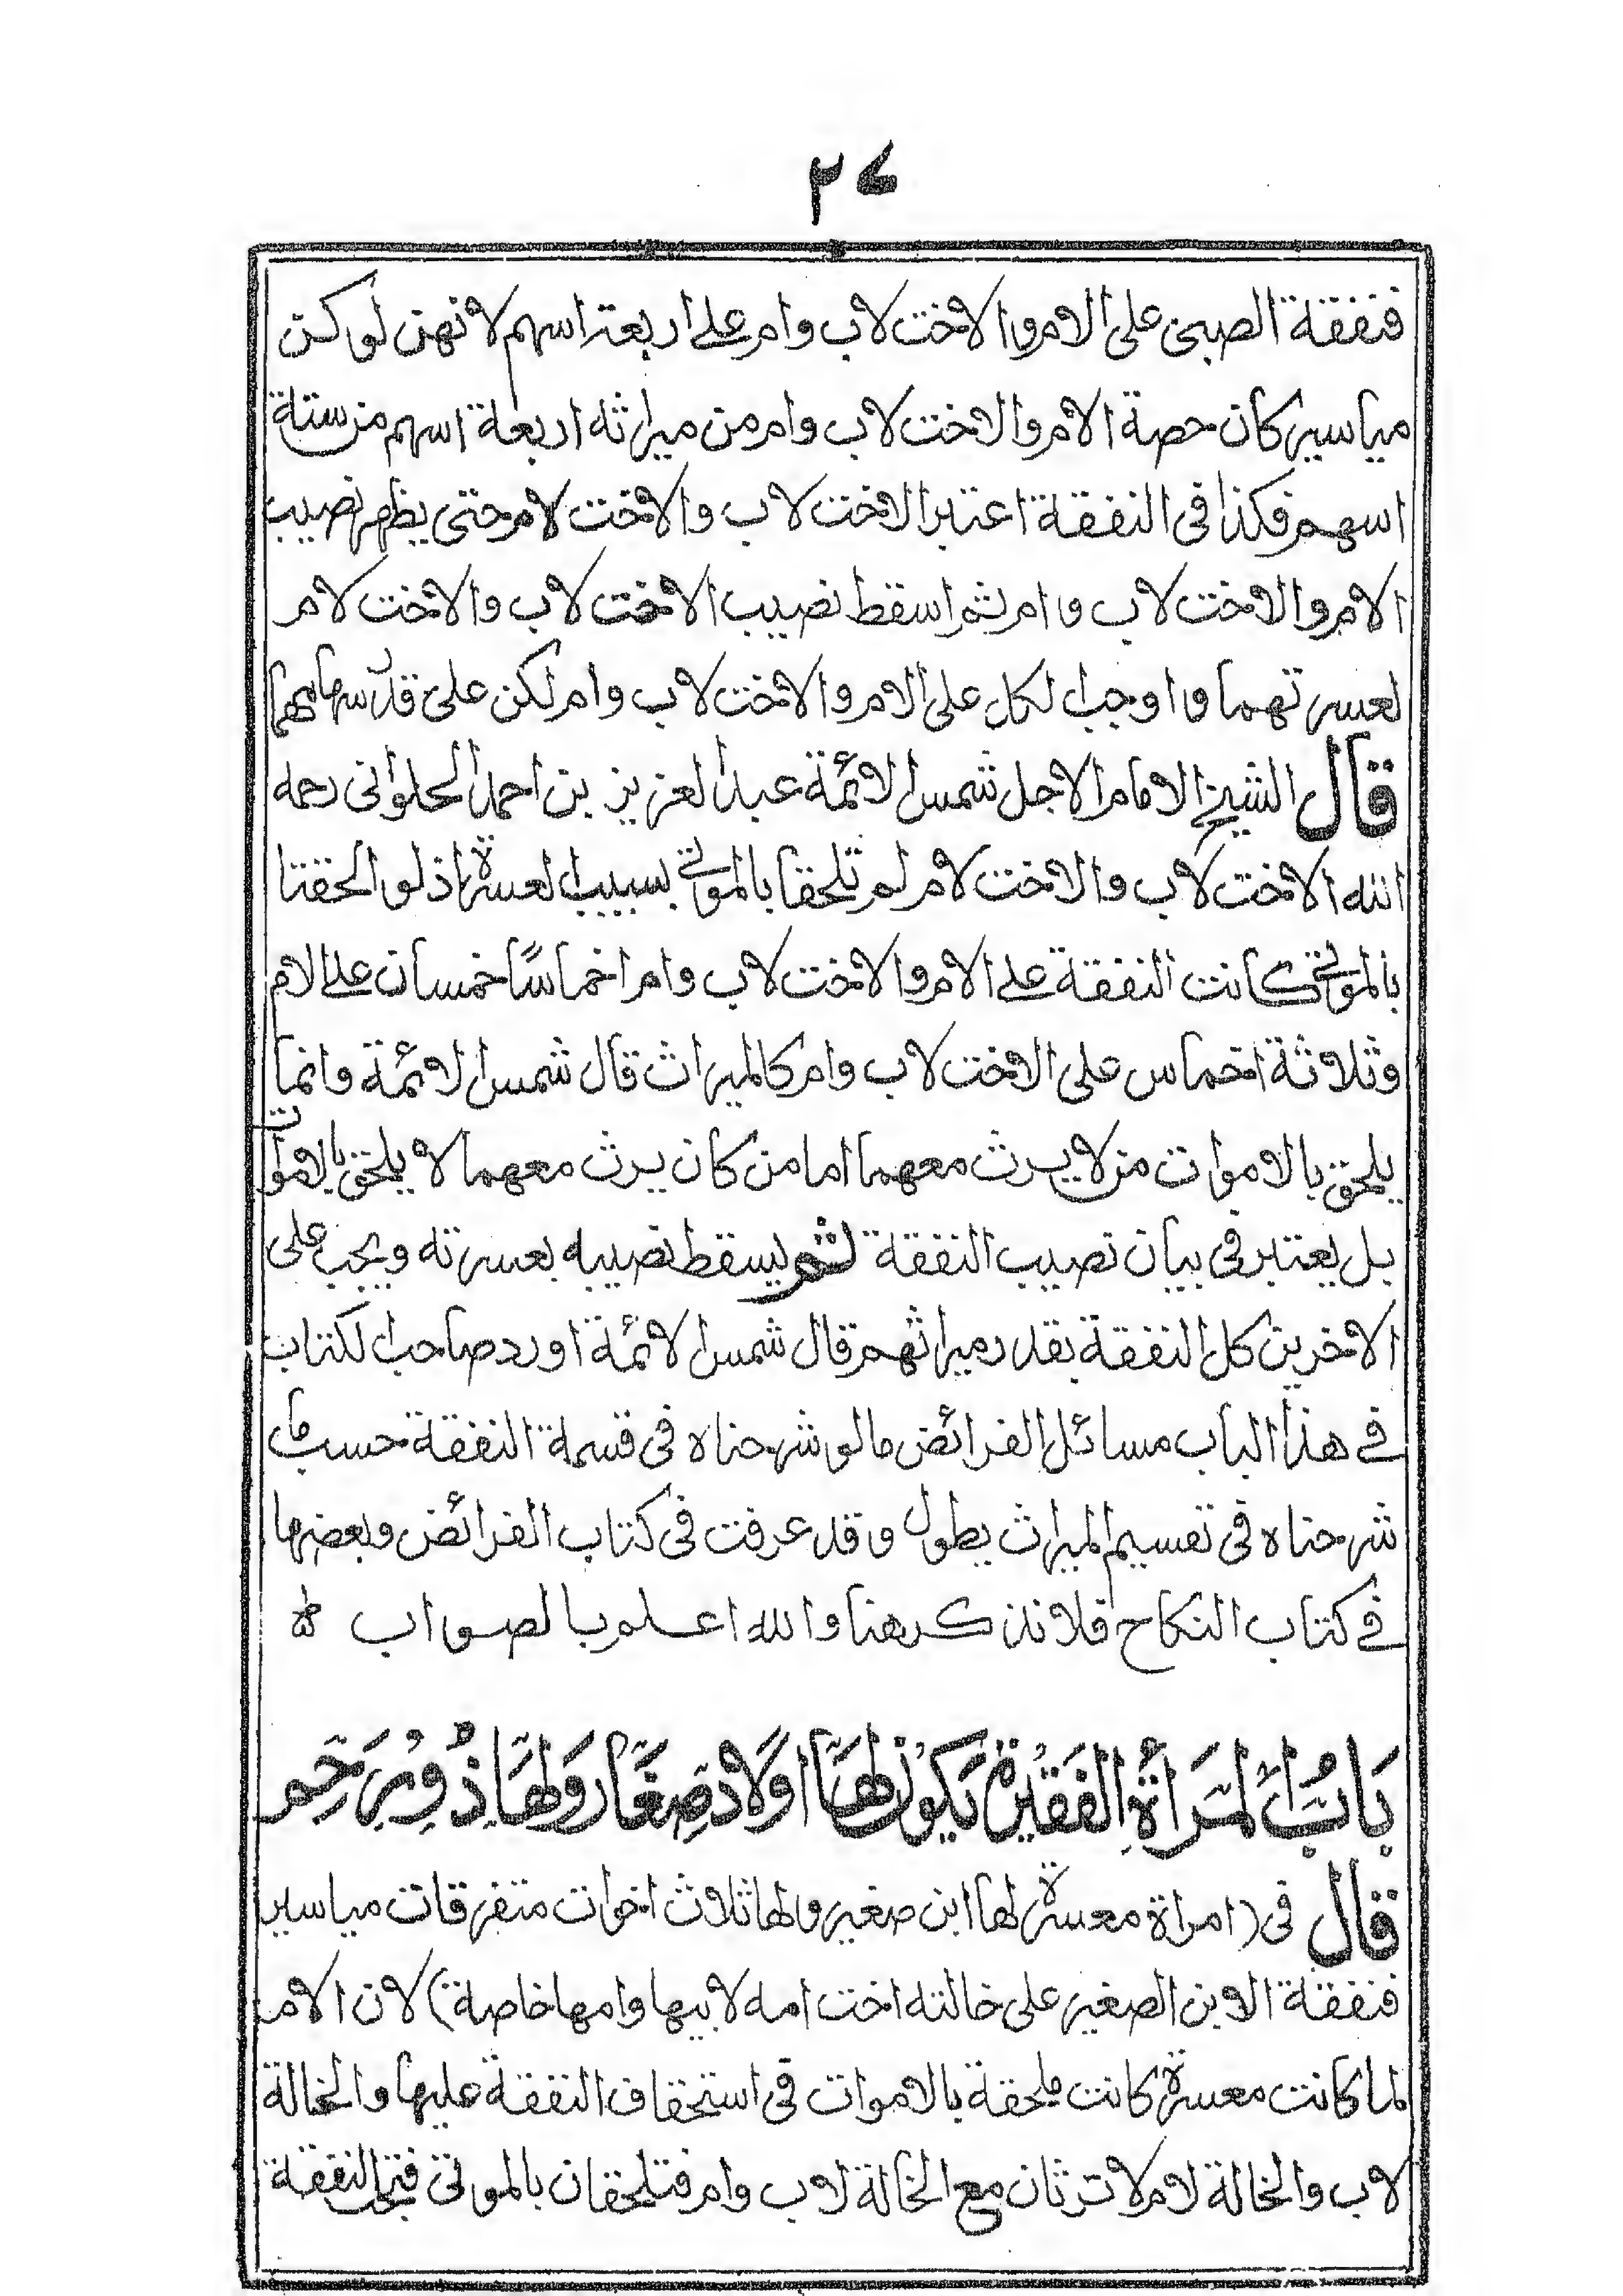 ٢٤
فنفقة الصبى على الام والاخت لاب وام على اربعة اسهم لانهن لو كن
مياسير كان حصة الام والاخت لاب وام من ميراثه اربعة اسهم من ستة
اسهم فكذا فى النفقة اعتبر الاخت لاب والاخت لام حتى يظهر نصيب
الام والاخت لاب وام ثم اسقط نصيب الاخت لاب والاخت لام
لعسرتهما واوجب الكل على الام والاخت لاب وام لكن على قدر سهامهما
قال الشيخ الامام الاجل شمس الائمة عبد العزيز بن احمد الحلوانى رحمه
الله الاخت لاب والاخت لام لم تلحقا بالموتى بسبب العسرة اذ لو الحقتا
بالموتى كانت النفقة على الام والاخت لاب وام اخماسًا خمسان على الام
وثلاثة اخماس على الاخت لاب وام كالميراث قال شمس الائمة وانما
يلحق بالاموات من لا يرث معهما اما من كان يرث معهما لا يلحق بالاموات
بل يعتبر فى بيان نصيب النفقة ثم يسقط نصيبه بعسرته ويجب على
الاخرين كل النفقة بقدر ميراثهم قال شمس الائمة اورد صاحب الكتاب
فى هذا الباب مسائل الفرائض ما لو شرحناه فى قسمة النفقة حسب ما
شرحناه فى تقسيم الميراث يطول وقد عرفت فى كتاب الفرائض وبعضها
فى كتاب النكاح فلا نذكر هنا والله اعلم بالصواب
بَابُ المَرأة الفَقِيرة يَكُونُ لهَا اولَاد صِغَار وَلهَا ذُو رَحِم
قال فى (امراة معسرة لها ابن صغير ولها ثلاث اخوات متفرقات مياسير
فنفقة الابن الصغير على خالته اخت امه لابيها وامها خاصة) لان الام
لما كانت معسرة كانت ملحقة بالاموات فى استحقاق النفقة عليها والخالة
لاب والخالة لام لا ترثان مع الخالة لاب وام فتلحقان بالموتى فتجب النفقة